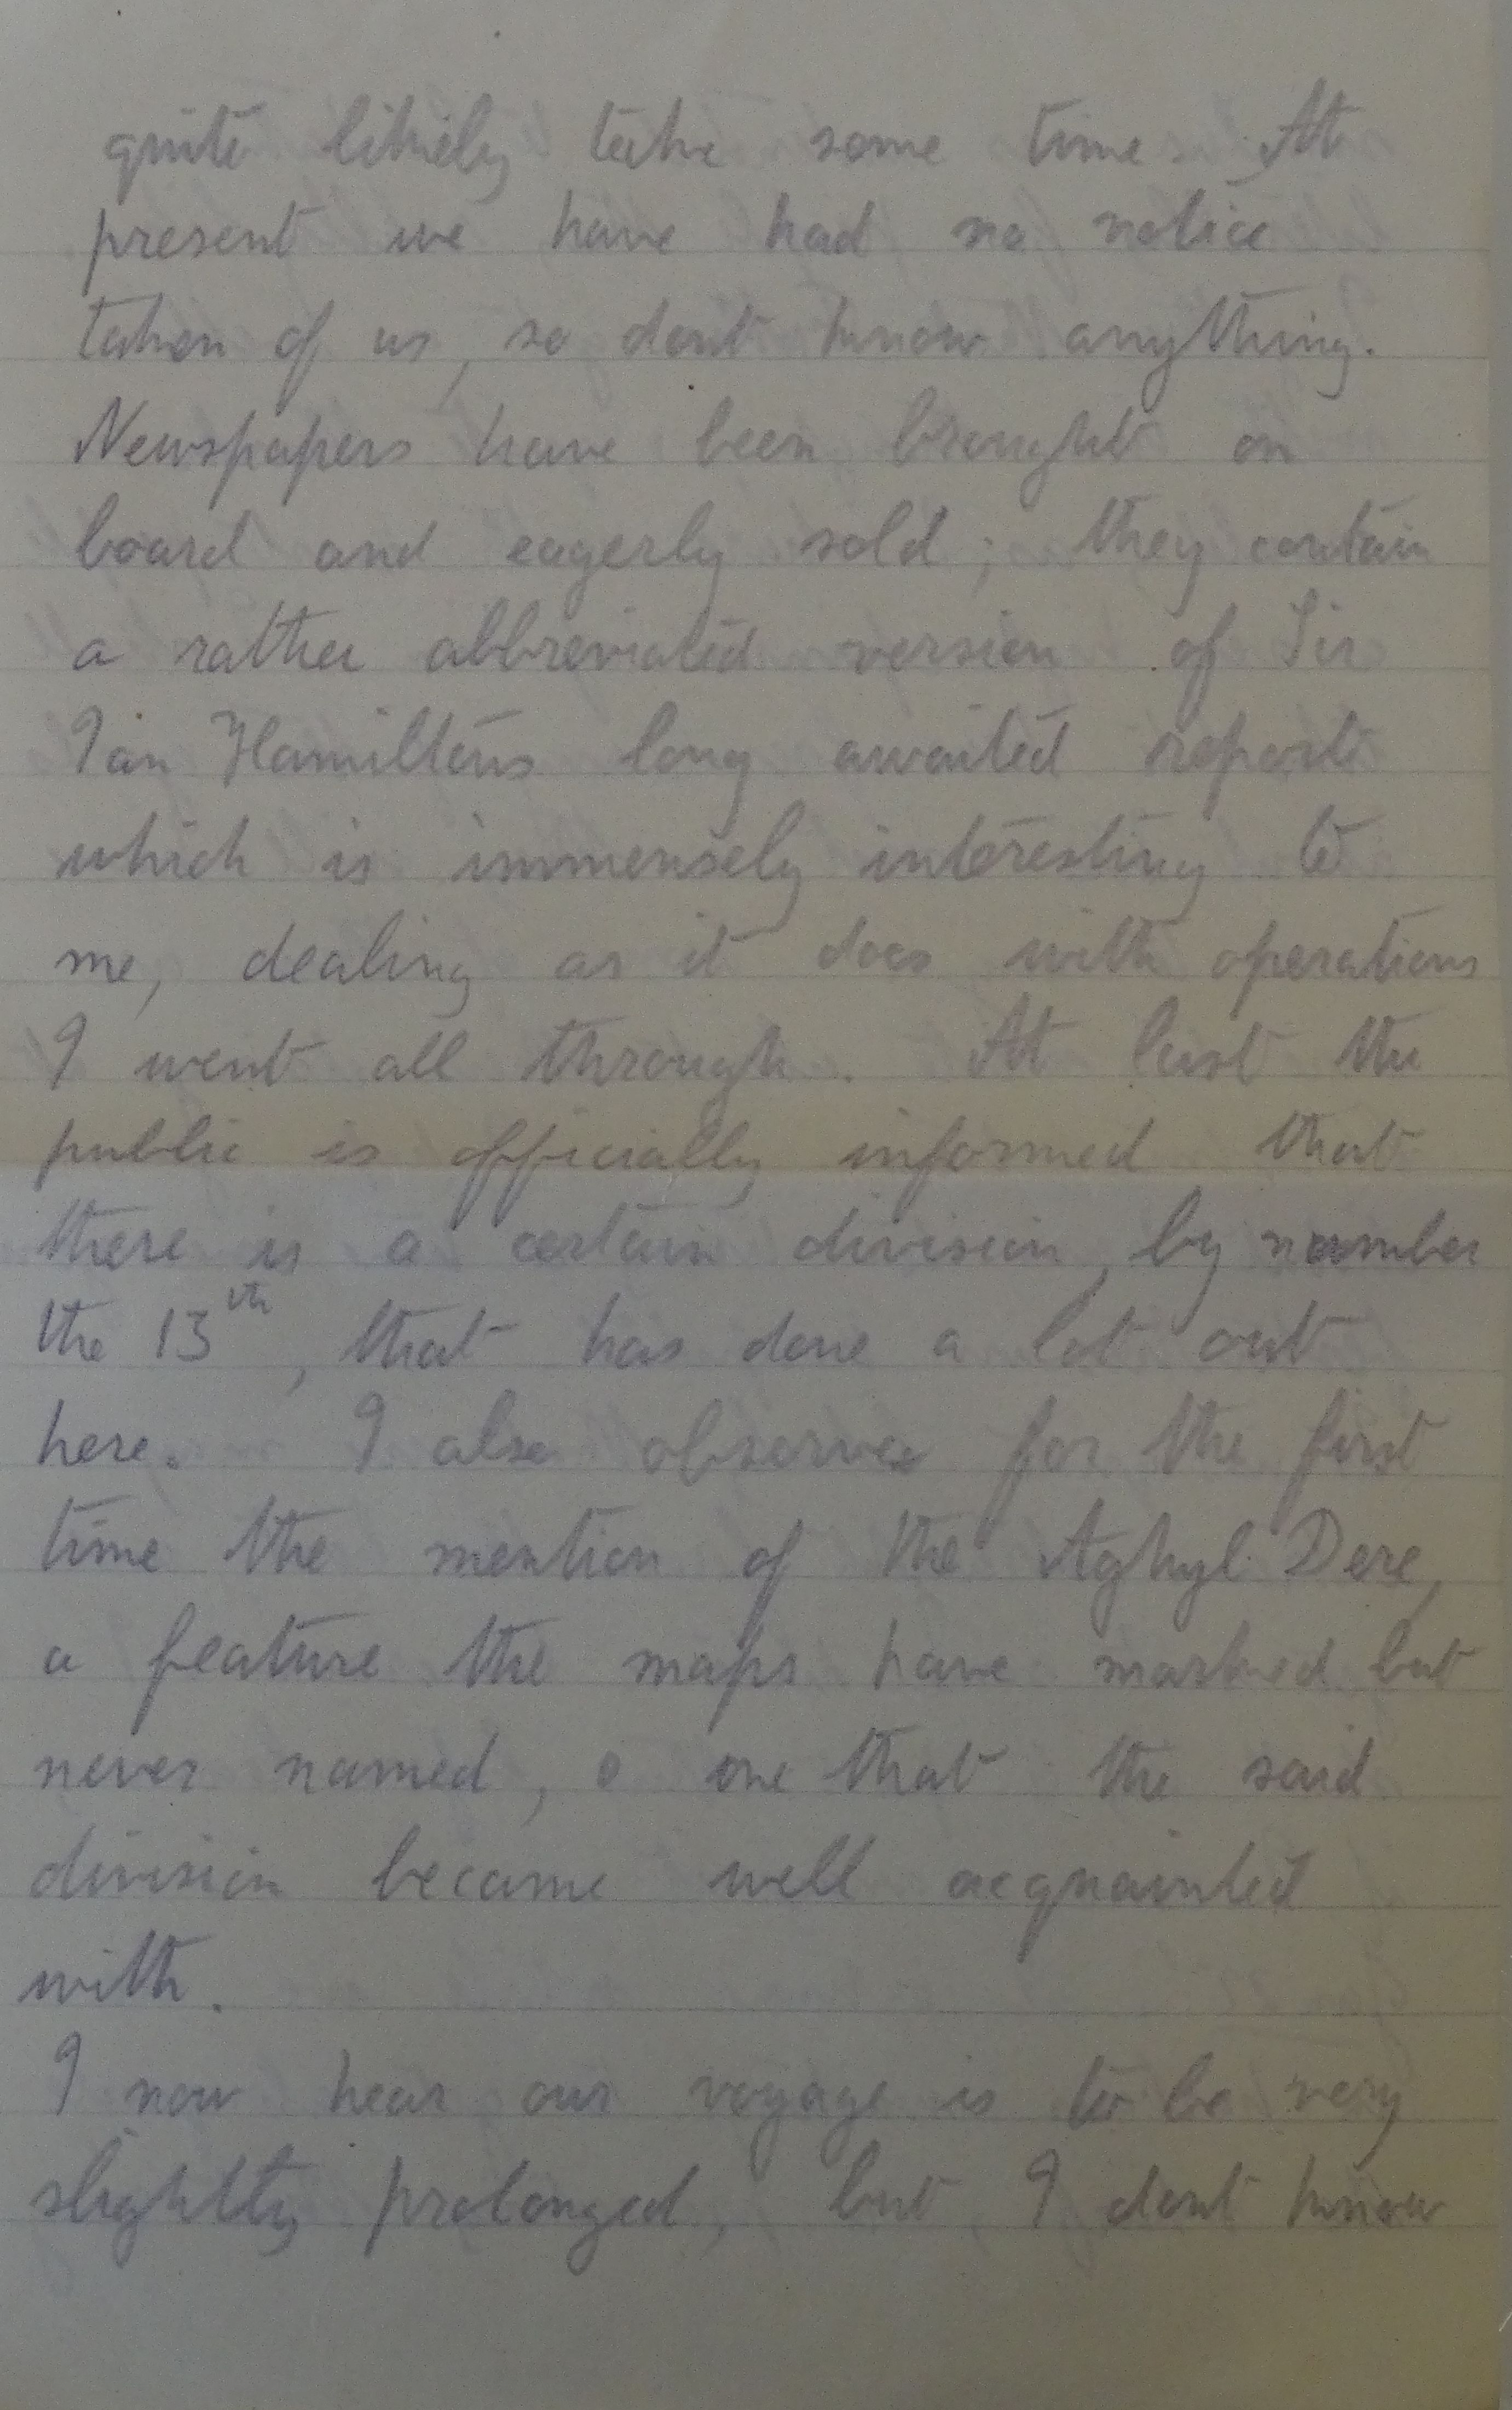 quite likely take some time. At
present we have had no notice
taken of us, so dont know anything.
Newspapers have been brought on
board and eagerly sold; they contain
a rather abbreviated version of Sir
Ian Hamiltons long awaited report
which is immensely interesting to
me, dealing as it does with operations
I went all through. At last the
public is officially informed that
there is a certain division, by number
the 13th, that has done a lot out
here. I also observe for the first
time the mention of the Aghyl Dere,
a feature the maps have marked but
never named, & one that the said
division became well acquainted
with.
I now hear our voyage is to be very
slightly prolonged, but I dont know